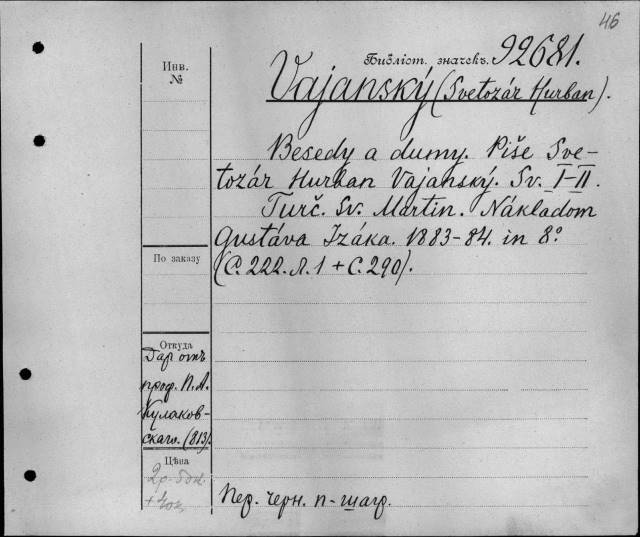 46
Библіот. значекъ. 92681.
Инв.
№
Vajanský (Svetozár Hurban).
Besedy a dumy. Píše Sve-
tozár Hurban Vajanský. Sv. I-II.
Turč. Sv. Martin. Nákladom
Gustáva Izáka. 1883-84. in 8º
(С. 222. л. 1 + С. 290).
По заказу
Откуда
Даръ отъ
проф. П. А.
Кулаков-
скаго. (813).
Цѣна
2р.
+
Пер. черн. п-шагр.